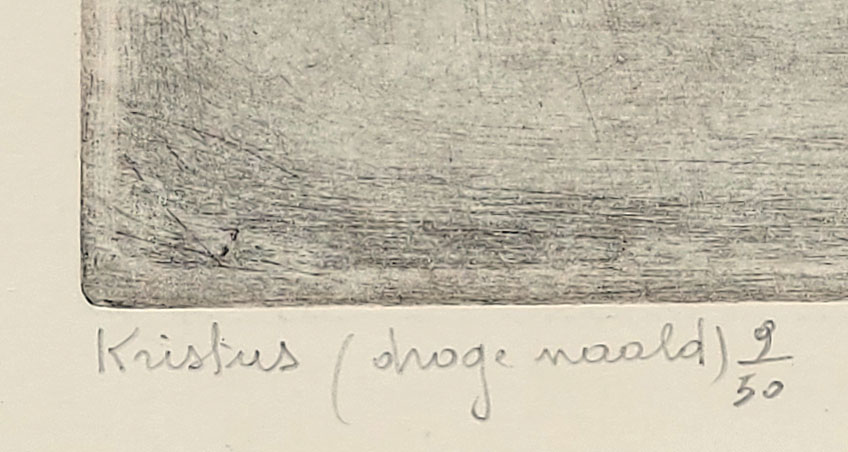 Kristus (droge naald) 9/50